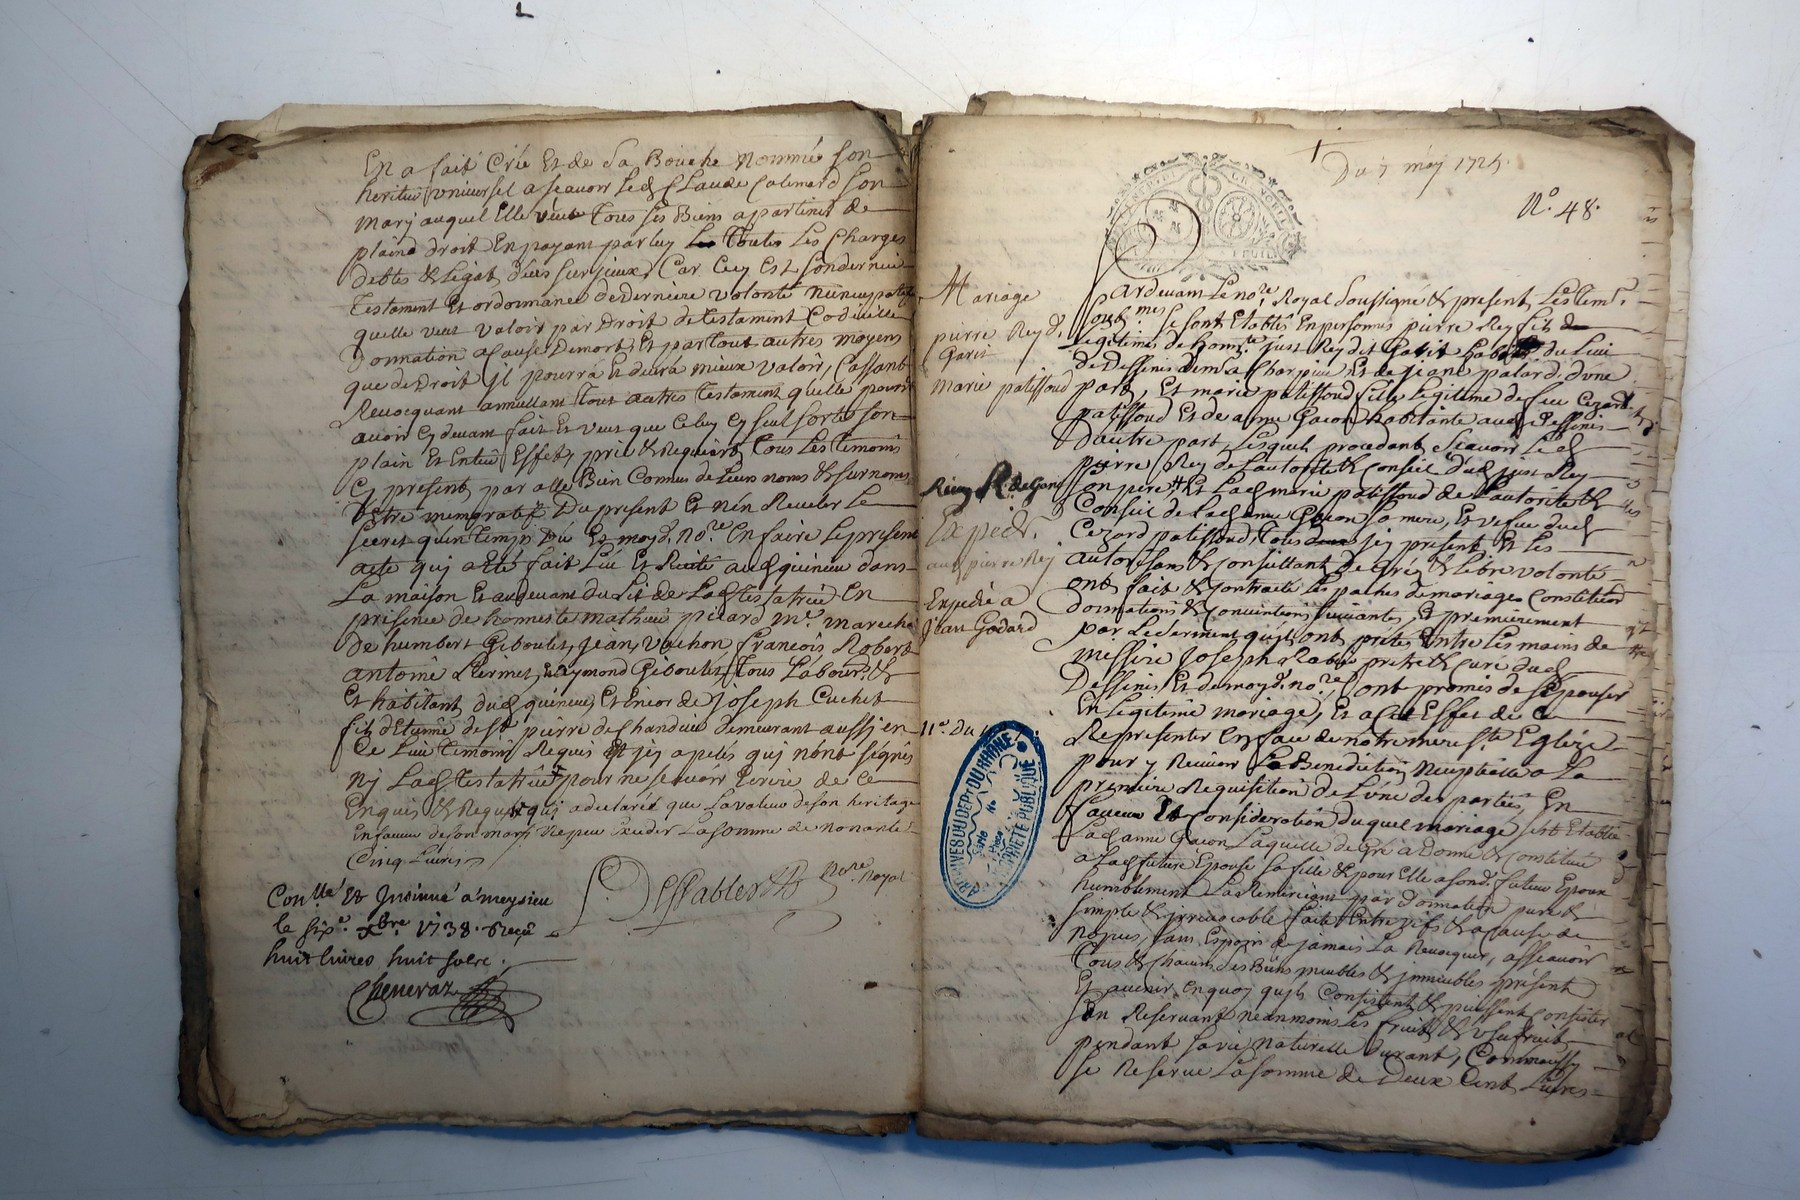 En a fait Crée Et de Sa Bouche Nommée son
heritier universel a sçavoir Led Claude Calemard son
Mary auquel Elle veut Tous ses Biens apartenir de
plaind droit En payant par luy Toutes Les Charges
debtes & legats Car Cecy Est son dernier
Testament Et ordonnance de derniere volonté nuncupatif
quelle veut valoir par Droit de testament Codicille
Donnation a Cause Demort, Et par Tout autres moyens
que de Droit jl pourra Et devra mieux valoir, Cassant
Revocquant annullant Tout autres Testament quelle pourroit
avoir Cy devant fait Et veut que Celuy Cy seul sorte son
plain Et Entier Effet, prié & Requierd Tous Les Temoins
Cy present, par elle Bien Connus de Leurs noms & surnoms
D'Etre memoratif Du present Et n'en Reveler Le
secret quin Temps Dû Et moyd. no.re En faire Le present
acte quj a Eté fait Lû Et Recité aud quinieu dans
La maison Et audevant du Lit de Lad Testatrice En
presence de honneste Mathieu picard m.e marechal
De humbert Giboulet, Jean Vachon, françois Robert
antoine Raymond Giboulet, Tous Labour.s &
Et habitant dud quinieu Et Encor de Joseph Cuchet
fils d'Etienne de S.t pierre de Chandieu demeurant aussj en
Ce Lieu Temoins Requis Et jcy apelés quj n'ont signés
Nj Lad Testatrice pour ne sçavoir Ecrire de Ce
Enquis & Requis quj a declaré que La valeur de son heritage
En faveur de son mary Ne peu Exceder La somme de nonante
Cinq Livres
Desables No.re Royal
Con.llé Et Insinué à meysieu
le six.e xbre 1738. Reçu
huit livres huit sols.
Cheneraz
Du 7 may 1725.
N.o 48.
Mariage
pierre Rey d.
Garit
marie patissoud
Expedié
aud pierre Rey
Expedié a
Jean Godard
11.e du
Pardevant Le no.re Royal Soussigné & present Les Tem.s
Soub.nés Se sont Etablis En personnes pierre Rey fils
Legitimes de hon.te just Rey dit Garit hab.t du Lieu
de Dessines Et de jeane palard, d'une
part, Et marie patissoud fille Legitime de feu Cezard
patissoud Et de anne Gacon habitante aud Dessines
Dautre part, Lesquels procedant, sçavoir Led
pierre Rey de Lautorité & Conseil dud just Rey
son pere, Et Lad marie patissoud de Lautorité &
Conseil de Lad anne Gacon sa mere, Et vefve dud
Cezard patissoud, Tous jcy present, Et Les
autorisans & Consultant, de gré & Libre volonté
ont fait & Contracté Les paches de mariage Constitution
donnations & Conventions suivantes, Et premierement
par Le serment quils ont prêté Entre Les mains de
messire Joseph prêtre & Curé dud
Dessines Et de moyd. no.re Ont promis de s'Epouser
En Legitime mariage, Et a Cet Effet de Ce
Representer En face de notre mere S.te Eglize
pour y Recevoir La Benediction Nuptialle a La
premiere Requisition de L'une des parties, En
faveur Et Consideration duquel mariage s'est Etablie
Lad anne Gacon Laquelle de Gré a Donné & Constitué
a Lad future Epouse sa fille & pour Elle a sond. futeur Epoux
humblement La Remerciant par donnation pure &
simple & jrrevocable faite Entre vifs & a Cause de
Nopces, sans Espoir de jamais La Revocquer, asseavoir
Tous & Chacuns ses Biens meubles & jmmeubles present
Et avenir En quoy quils Consistent & puissent Consister
S'en Reservant neanmoins Les fruits & usufruit
pendant sa vie naturelle durant, Comme aussy
se Reserve La somme de Deux Cent Livres
ARCHIVES DU DEPT DU RHONE
PROPRIETE PUBLIQUE